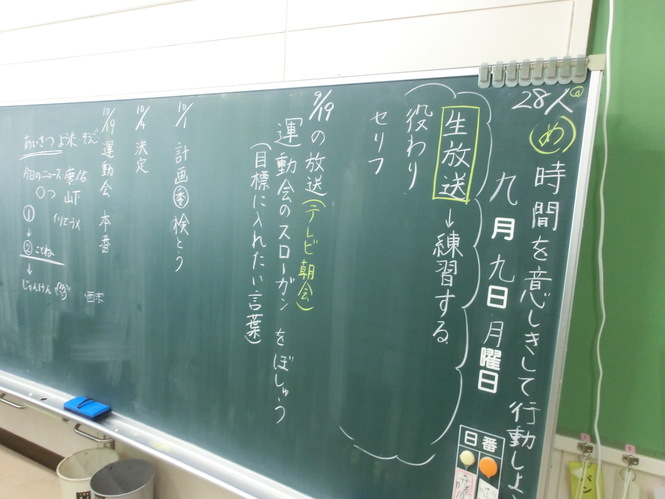 28人
め 時間を意しきして行動しよ
九月九日月曜日
生放送→練習する
役わり
セリフ
9/19の放送(テレビ朝会)
運動会のスローガンをぼしゅう
(目標に入れたい言葉)
10/1 計画委検とう
10/4 決定
10/19 運動会 本番
あいさつ
今日のニュース
①
↓
②
↓
じゃんけん
日番